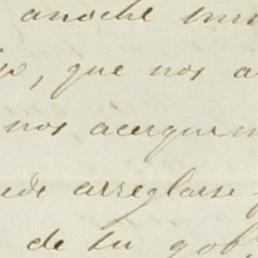 anoche
que nos a
nos acerquem
ede arreglarse
de su gob